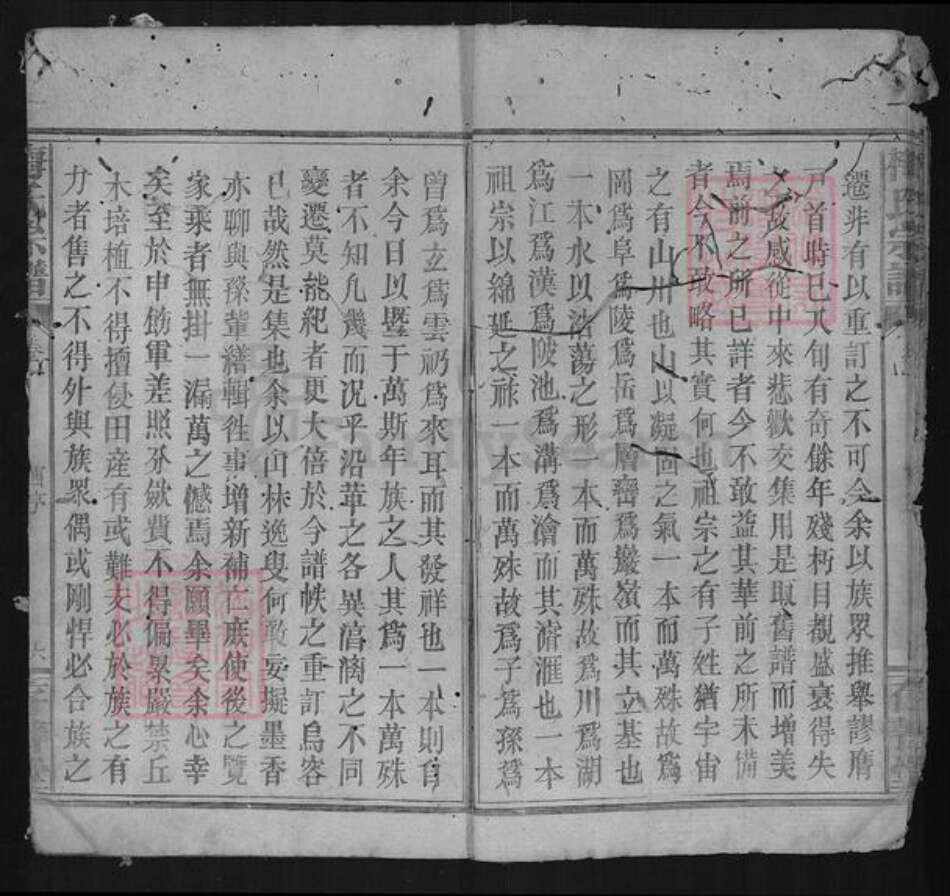 遷非有以重訂之不可今余以族眾推舉謬膺
戶首時已八旬有奇餘年殘朽目覩盛衰得失
之故感從中來悲歡交集用是取舊譜而增美
焉前之所已詳者今不敢益其華前之所未備
者今不敢略其實何也祖宗之有子姓猶宇宙
之有山川也山以凝固之氣一本而萬殊故爲
岡爲阜爲陵爲岳爲層巒爲巖嶺而其立基也
一本水以浩蕩之形一本而萬殊故爲川爲湖
爲江爲漢爲陂池爲溝爲澮而其瀦滙也一本
祖宗以綿延之祿一本而萬殊故爲子爲孫爲
曾爲玄爲雲礽爲來耳而其發祥也一本則自
余今日以曁于萬斯年族之人其爲一本萬殊
者不知凡幾而况乎沿革之各異湻漓之不同
變遷莫能紀者更大倍於今譜帙之重訂烏容
已哉然是集也余以山林逸叟何敢妄擬墨香
亦聊與孫輩繕輯徃事增新補亡庶使後之覽
家乘者無掛一漏萬之憾焉余願畢矣余心幸
矣至於申飭軍差照分歛費不得偏累嚴禁丘
木培植不得擅侵田産有或難支必於族之有
力者售之不得外與族眾偶或剛悍必合族之
氏宗譜
卷首
舊序
六